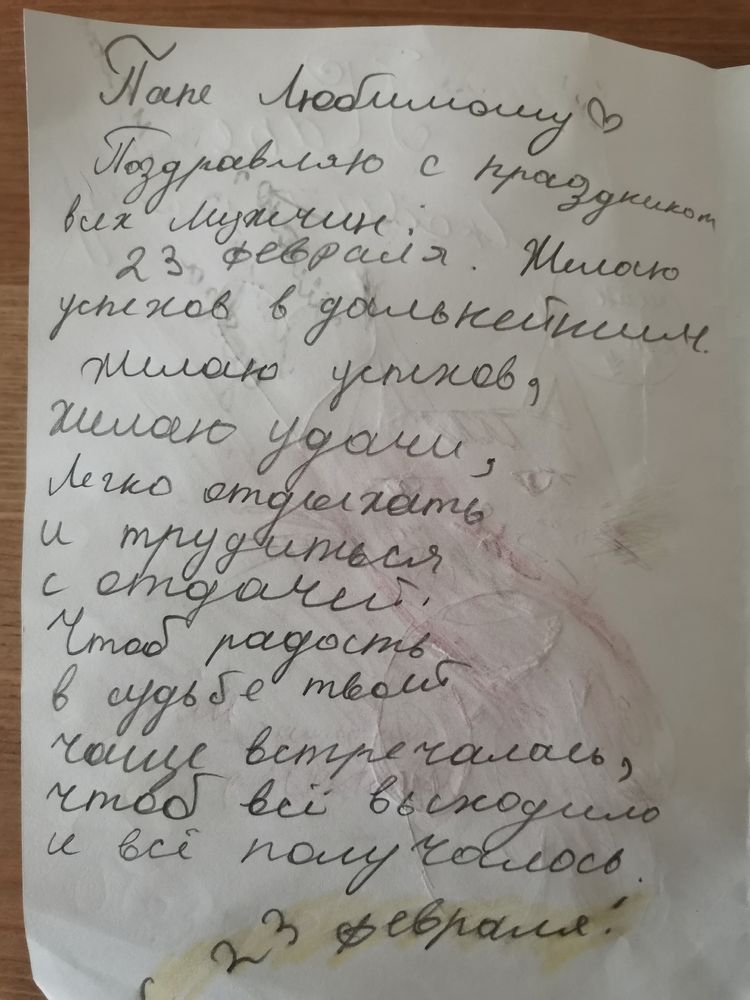 Папе Любимому♡
Поздравляю с праздником
всех Мужчин!
23 февраля. Желаю
успехов в дальнейшим.
Желаю успехов,
Желаю удачи,
Легко отдыхать
и трудиться
с отдачей.
Чтоб радость
в судьбе твоей
чаще встречалась,
чтоб всё выходило
и всё получалось.
с 23 февраля!